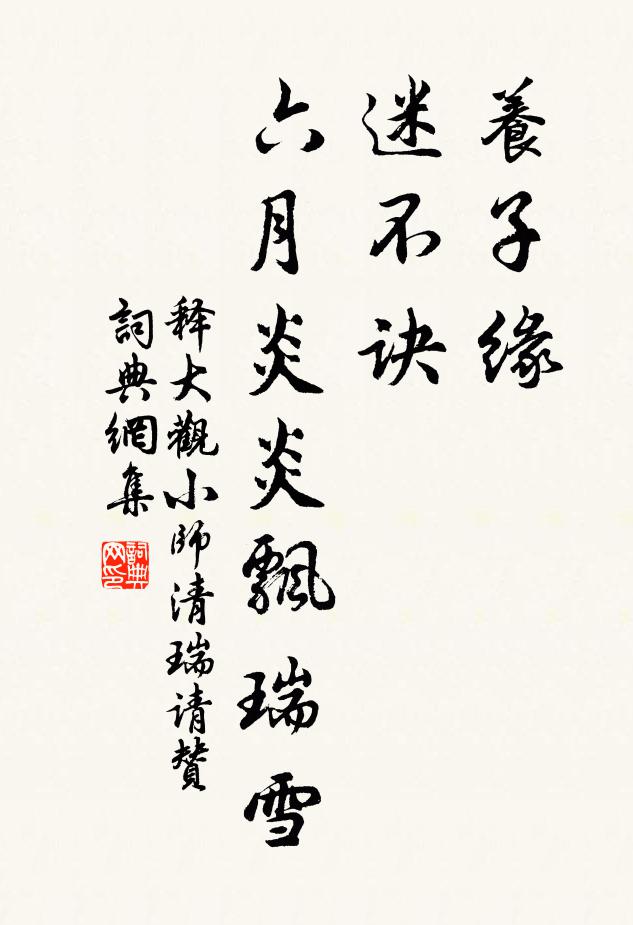 養子缘
迷不诀
六月炎炎飄瑞雪
释大觀小師清瑞请贊
詞典網集
詞典网印